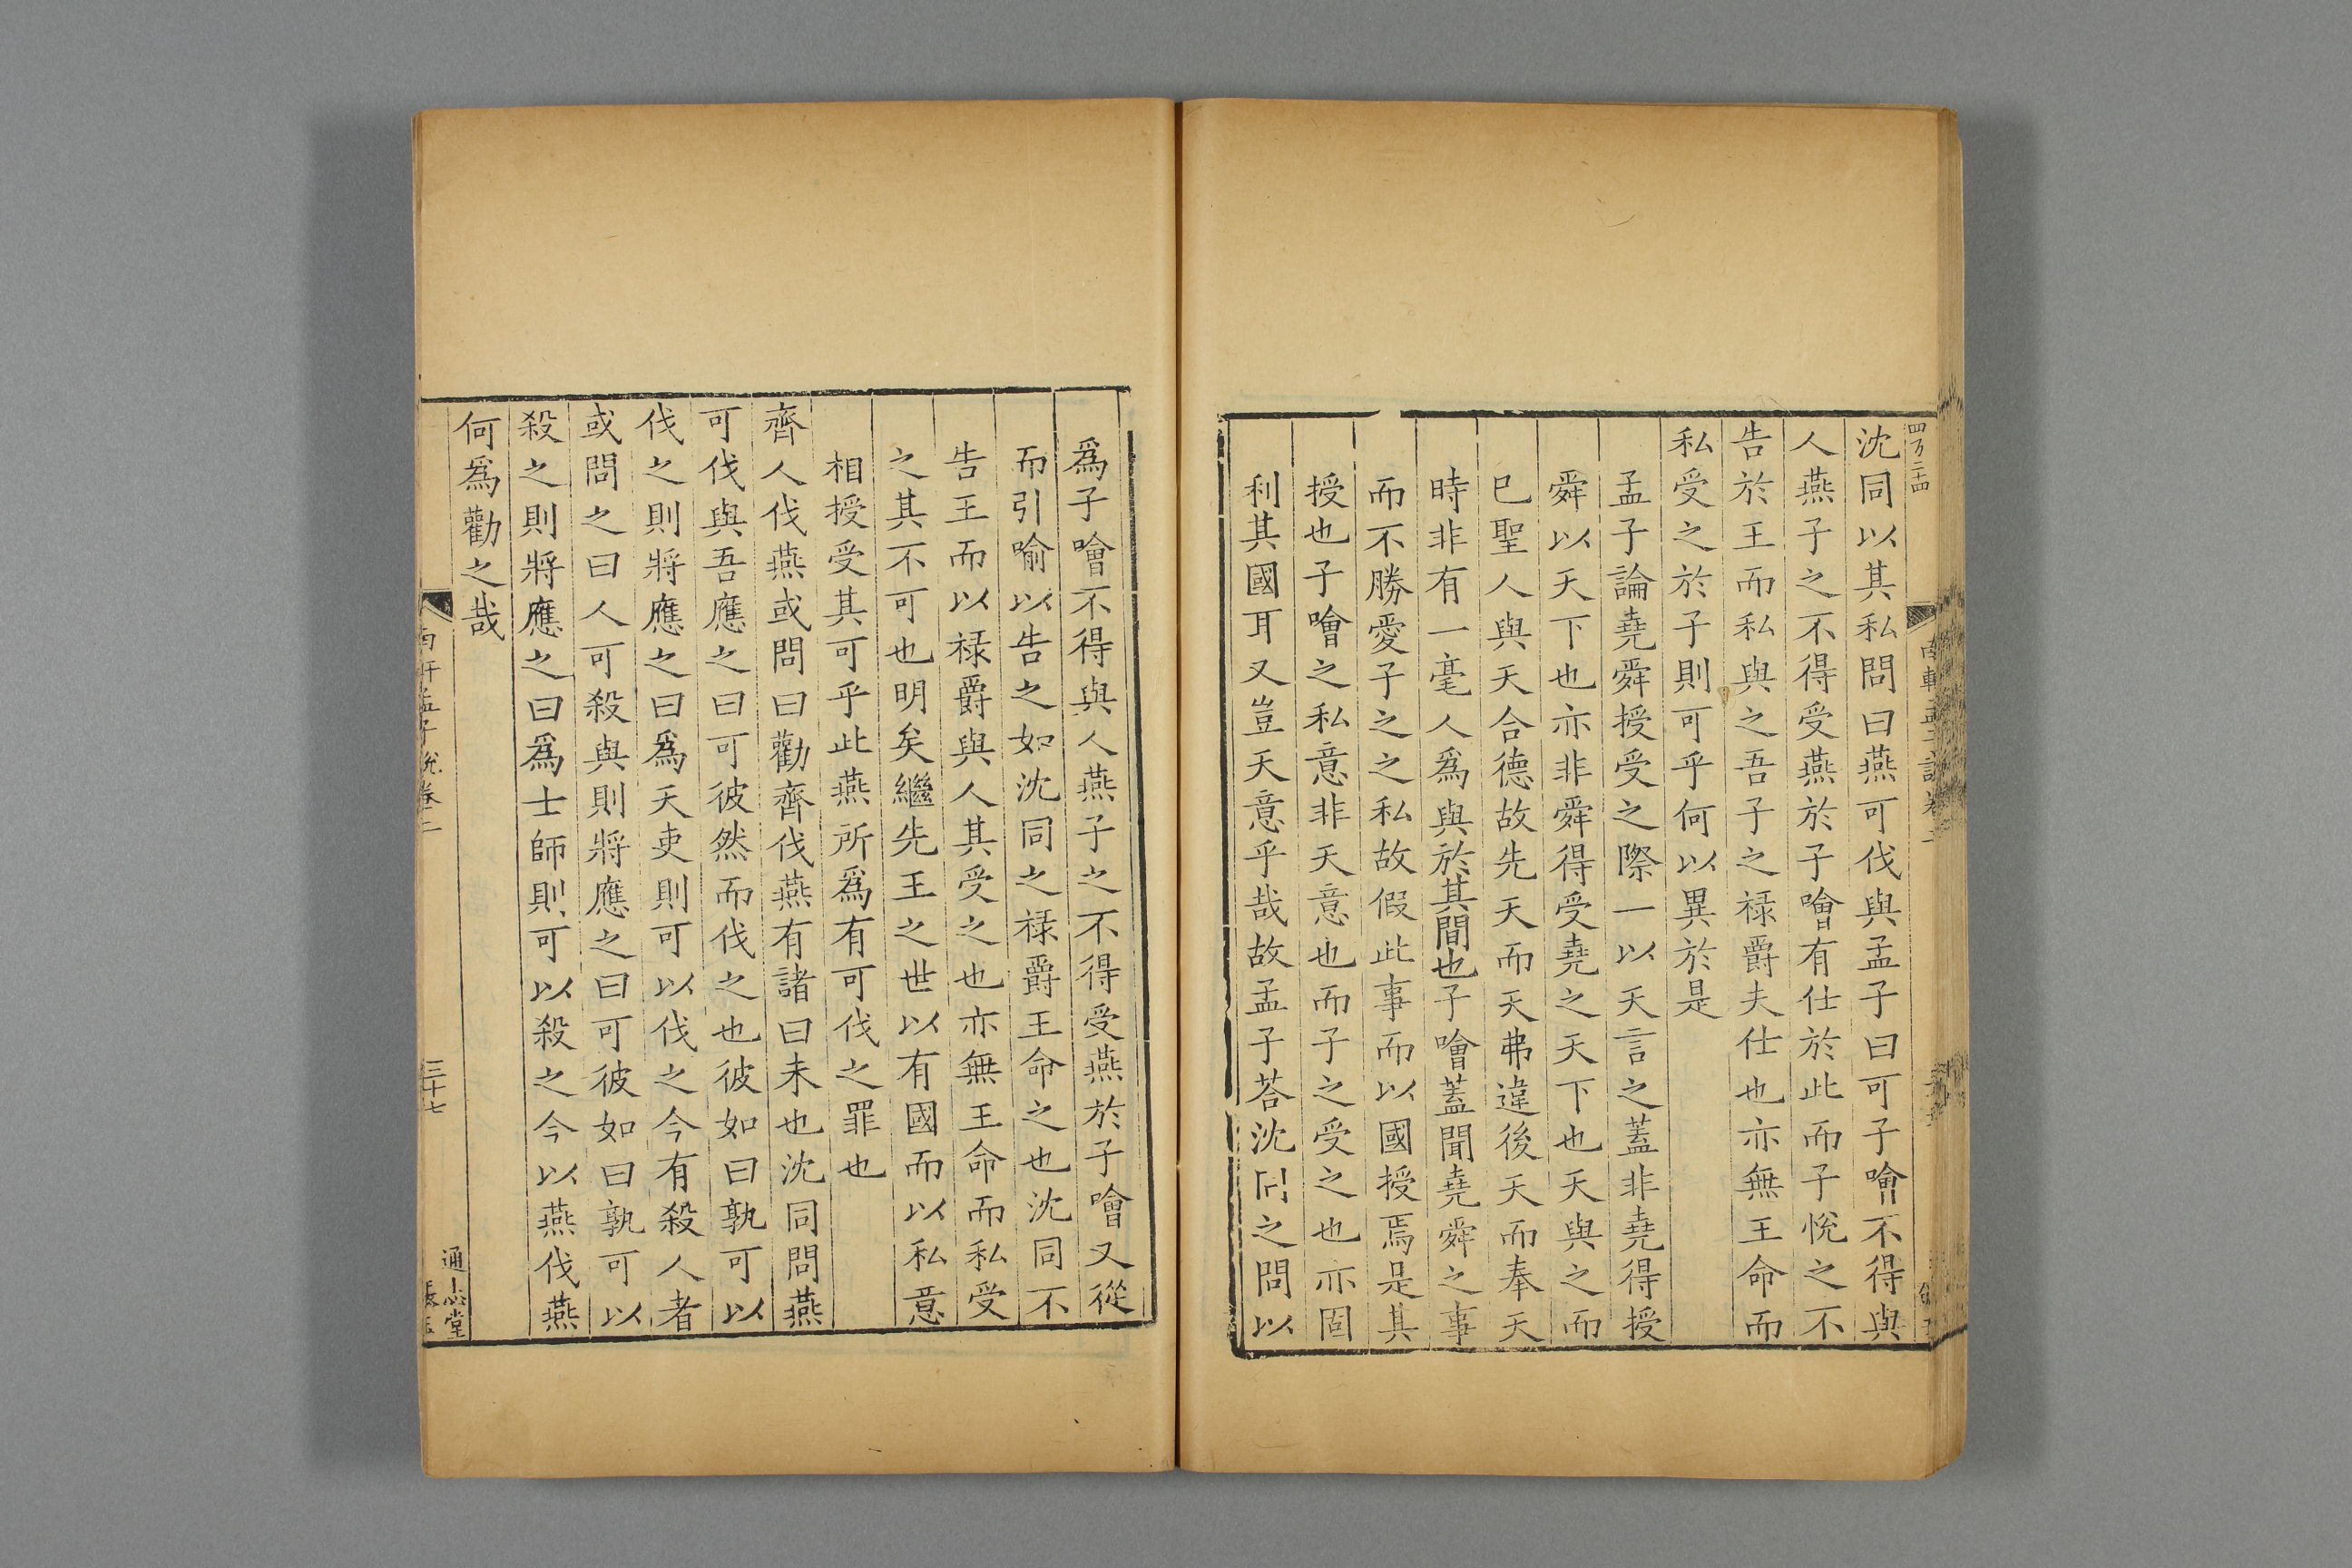 四万二十四
沈同以其私問曰燕可伐與孟子曰可子噲不得與
人燕子之不得受燕於子噲有仕於此而子悅之不
告於王而私與之吾子之祿爵夫仕也亦無王命而
私受之於子則可乎何以異於是
孟子論堯舜授受之際一以天言之蓋非堯得授
舜以天下也亦非舜得受堯之天下也天與之而
已聖人與天合德故先天而天弗違後天而奉天
時非有一毫人爲與於其間也子噲蓋聞堯舜之事
而不勝愛子之之私故假此事而以國授焉是其
授也子噲之私意非天意也而子之受之也亦固
利其國耳又豈天意乎哉故孟子荅沈同之問以
爲子噲不得與人燕子之不得受燕於子噲又從
而引喻以告之如沈同之祿爵王命之也沈同不
告王而以祿爵與人其受之也亦無王命而私受
之其不可也明矣繼先王之世以有國而以私意
相授受其可乎此燕所爲有可伐之罪也
齊人伐燕或問曰勸齊伐燕有諸曰未也沈同問燕
可伐與吾應之曰可彼然而伐之也彼如曰孰可以
伐之則將應之曰爲天吏則可以伐之今有殺人者
或問之曰人可殺與則將應之曰可彼如曰孰可以
殺之則將應之曰爲士師則可以殺之今以燕伐燕
何爲勸之哉
南軒孟子說卷二
三十七
通志堂